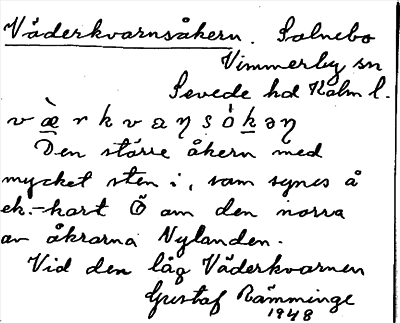 Väderkvarnsåkern. Solnebo
Vimmerby sn
Sevede hd Kalm l.
v æ̀ r k v a ŋ s ó k ə ŋ
Den större åkern med
mycket sten i, som synes å
ek.-kart Ö om den norra
av åkrarna Nylanden.
Vid den låg Väderkvarnen
Gustaf Rämminge
1948